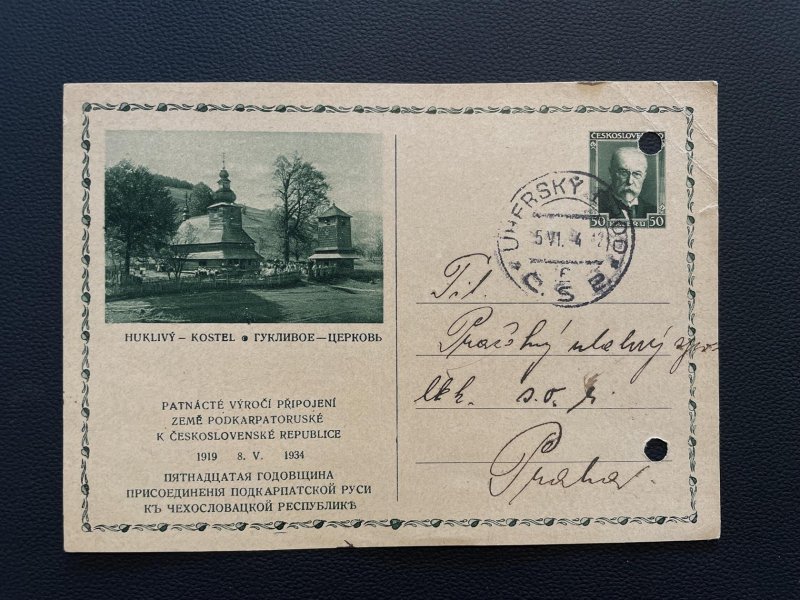 HUKLIVÝ – KOSTEL • ГУКЛИВОЕ – ЦЕРКОВЬ
PATNÁCTÉ VÝROČÍ PŘIPOJENÍ
ZEMĚ PODKARPATORUSKÉ
K ČESKOSLOVENSKÉ REPUBLICE
1919 8. V. 1934
ПЯТНАДЦАТАЯ ГОДОВЩИНА
ПРИСОЕДИНЕНІЯ ПОДКАРПАТСКОЙ РУСИ
КЪ ЧЕХОСЛОВАЦКОЙ РЕСПУБЛИКѢ
50 50
UHERSKÝ
ČSR
Tit.
Pražský
s.o.
Praha